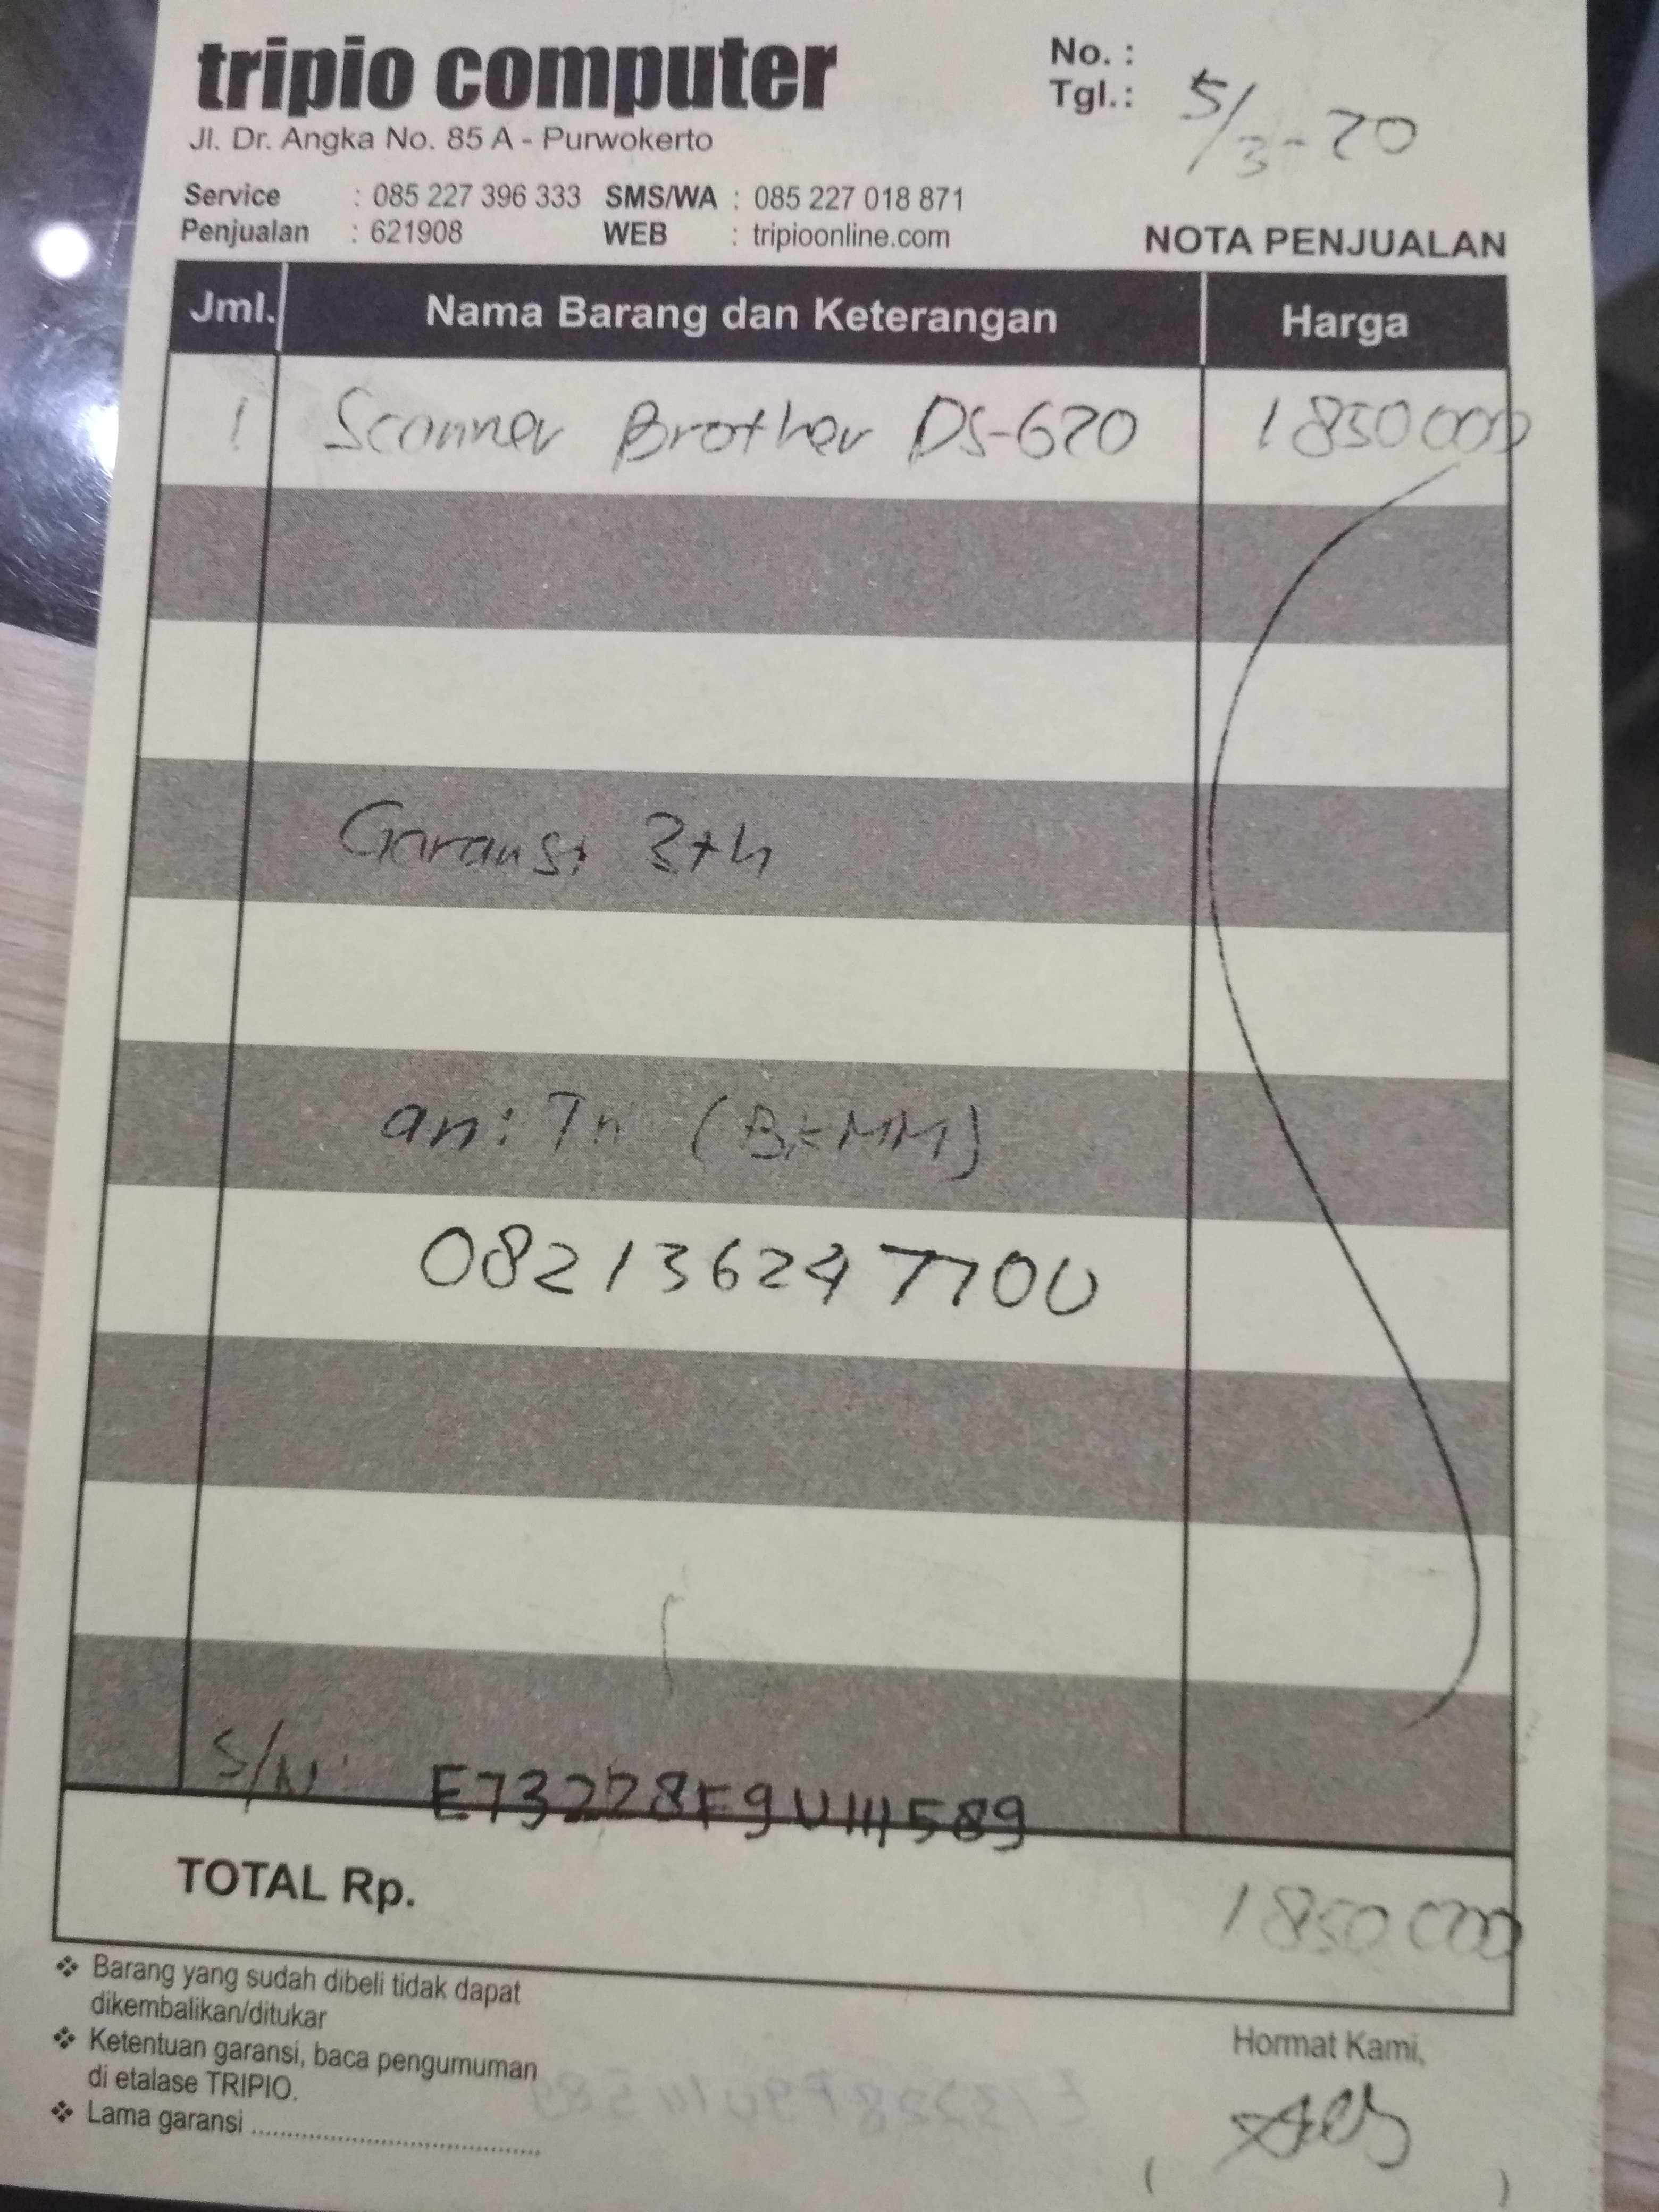 tripio computer
Jl. Dr. Angka No. 85 A - Purwokerto
No. :
Tgl.: 5/3-20
Service : 085 227 396 333 SMS/WA : 085 227 018 871
Penjualan : 621908 WEB : tripioonline.com
NOTA PENJUALAN
Jml. Nama Barang dan Keterangan Harga
1 Scanner Brother DS-620 1850000
Garansi 3th
an: Tri (BKMM)
082136247700
S/N: E73228F9U111589
TOTAL Rp. 1850000
❖ Barang yang sudah dibeli tidak dapat
dikembalikan/ditukar
❖ Ketentuan garansi, baca pengumuman
di etalase TRIPIO.
❖ Lama garansi ........................................
Hormat Kami,
( )